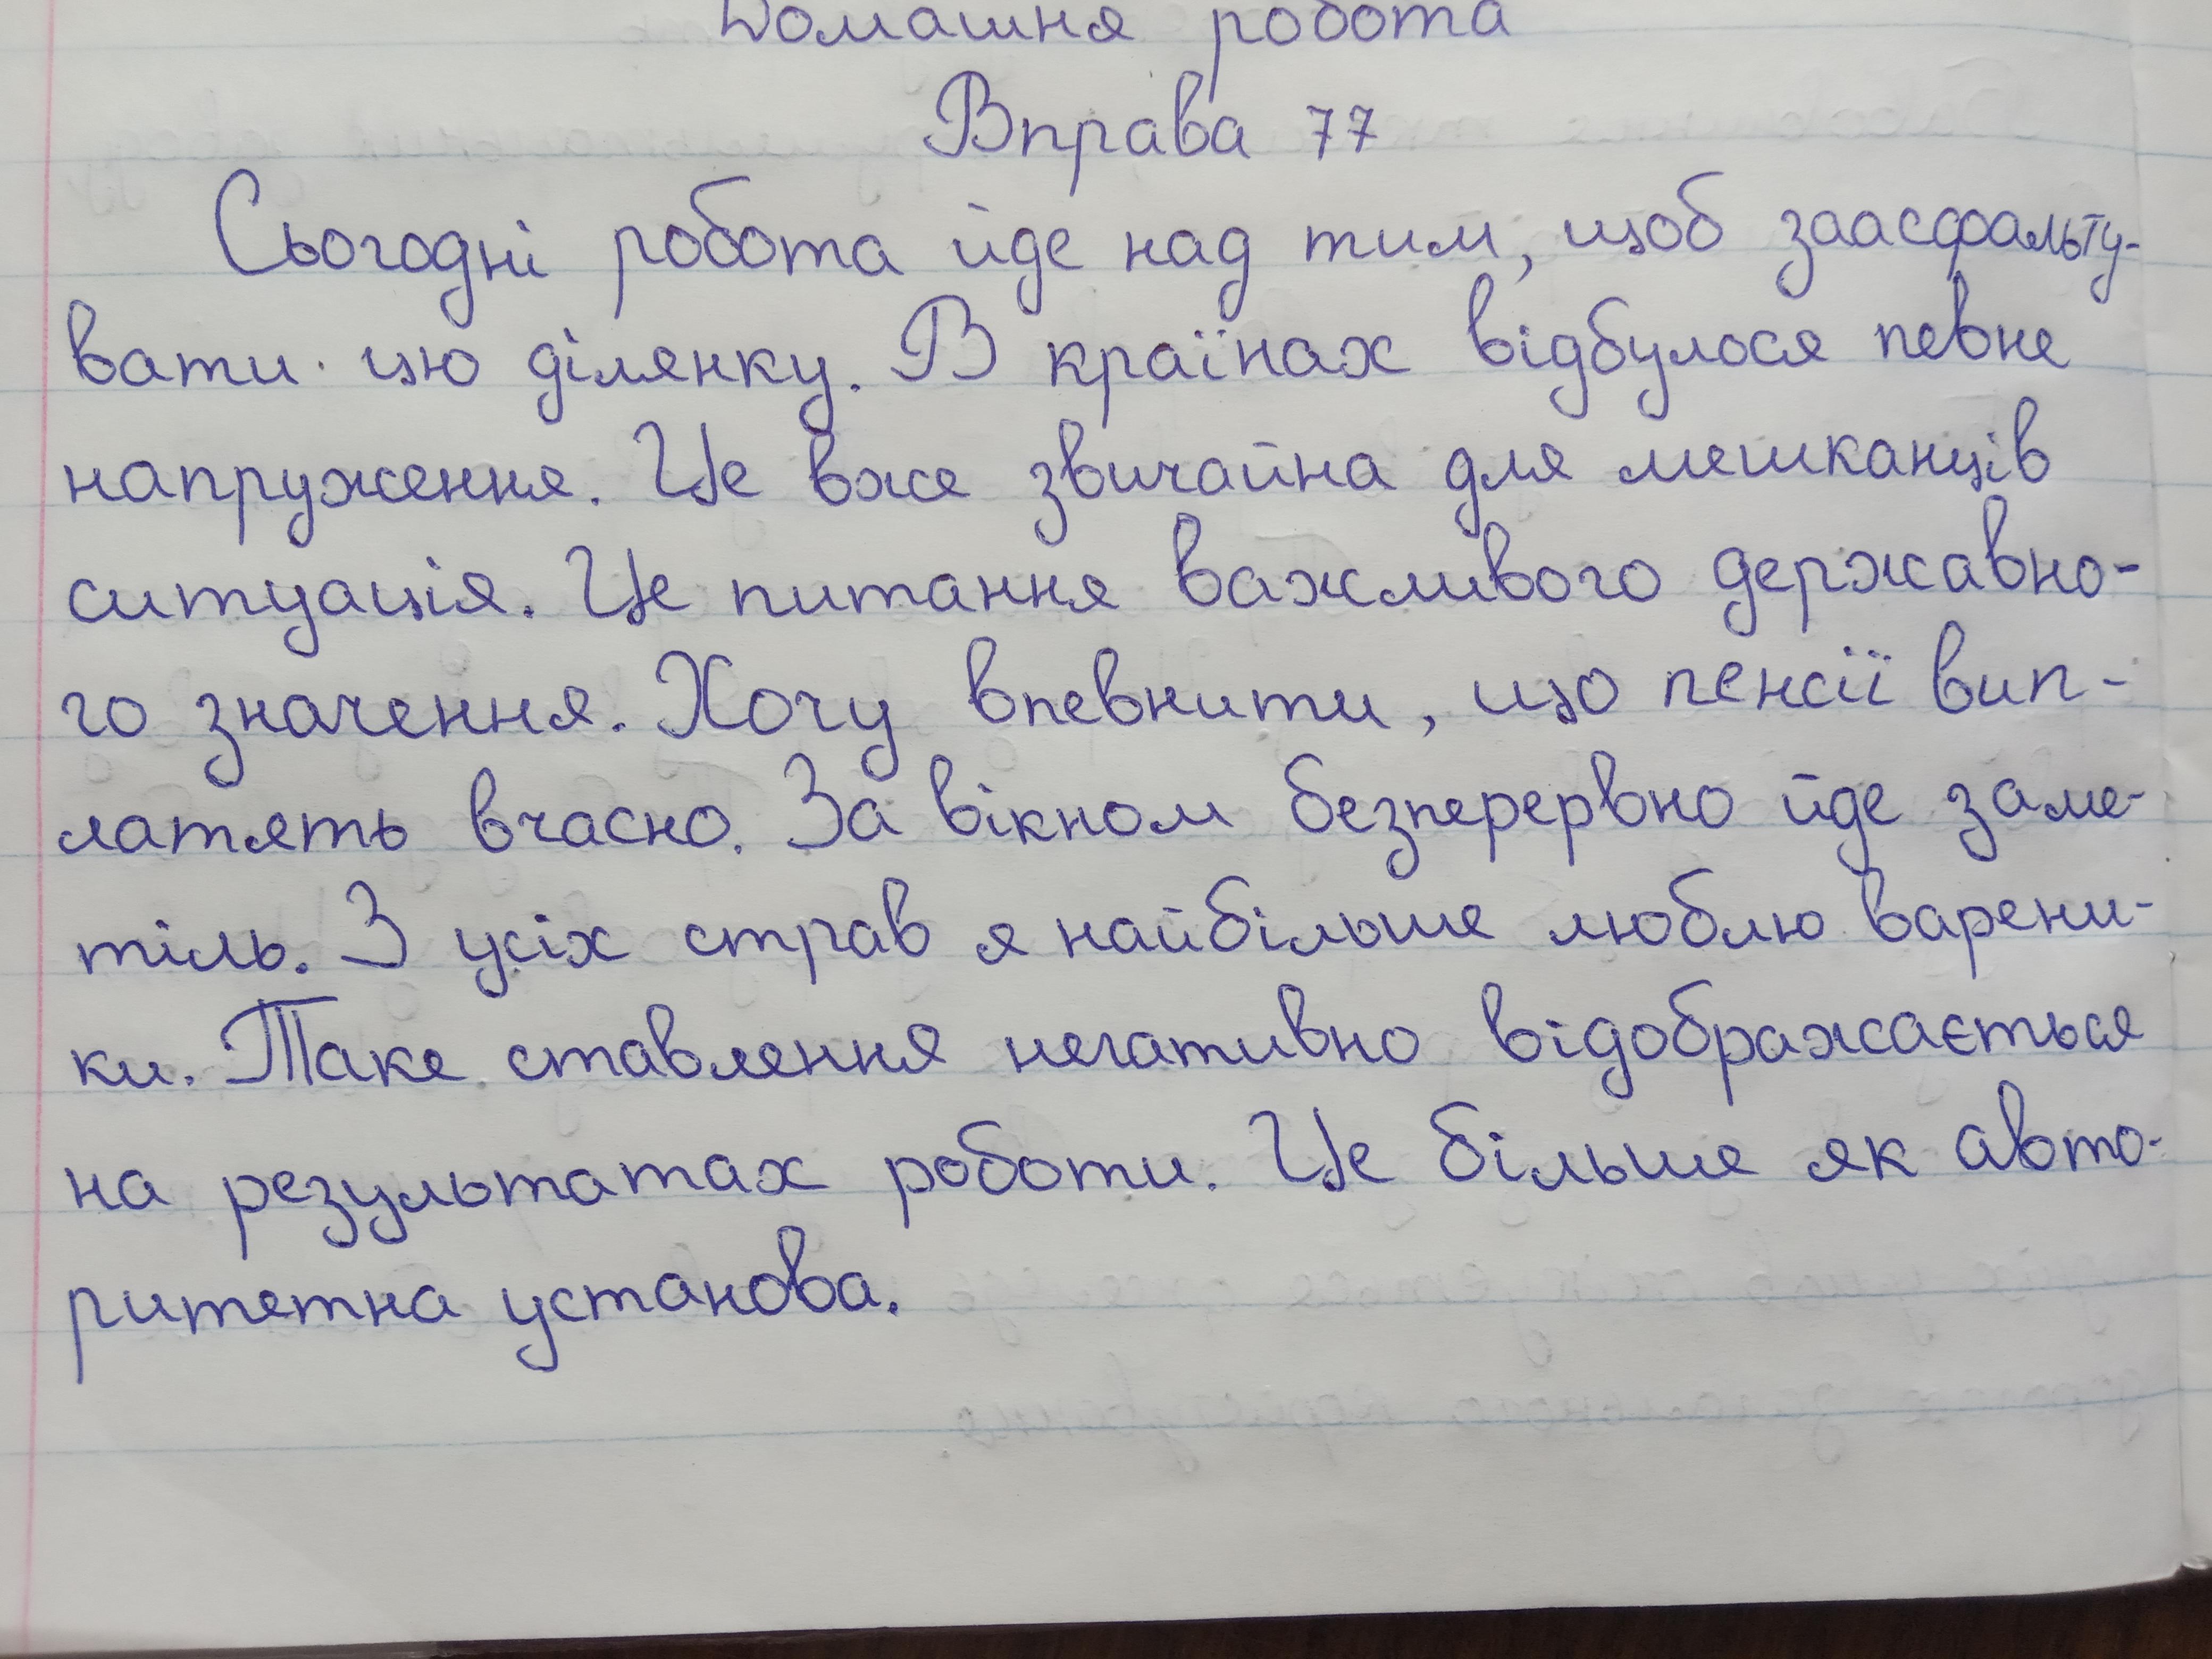 Домашня робота
Вправа 77
Сьогодні робота йде над тим, щоб заасфальту-
вати цю ділянку. В країнах відбулося певне
напруження. Це вже звичайна для мешканців
ситуація. Це питання важливого державно-
го значення. Хочу впевнити, що пенсії вип-
латять вчасно. За вікном безперервно йде заме-
тіль. З усіх страв я найбільше люблю варени-
ки. Таке ставлення негативно відображається
на результатах роботи. Це більше як авто-
ритетна установа.